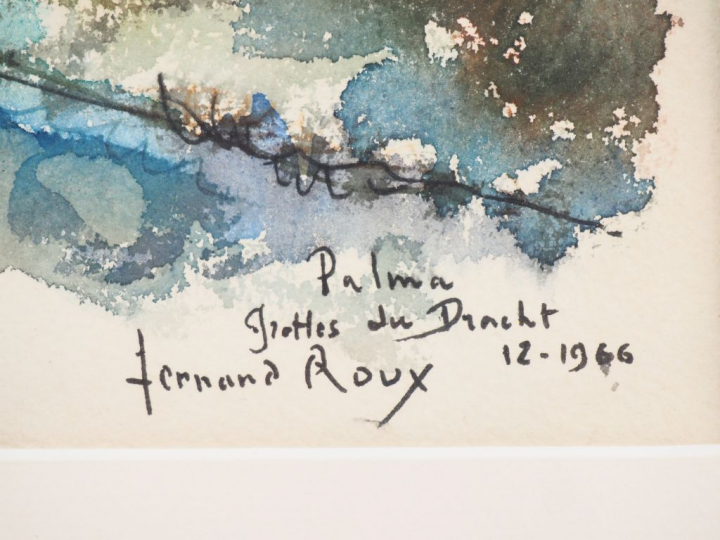 Palma
Grottes du Dracht
12-1966
Fernand Roux